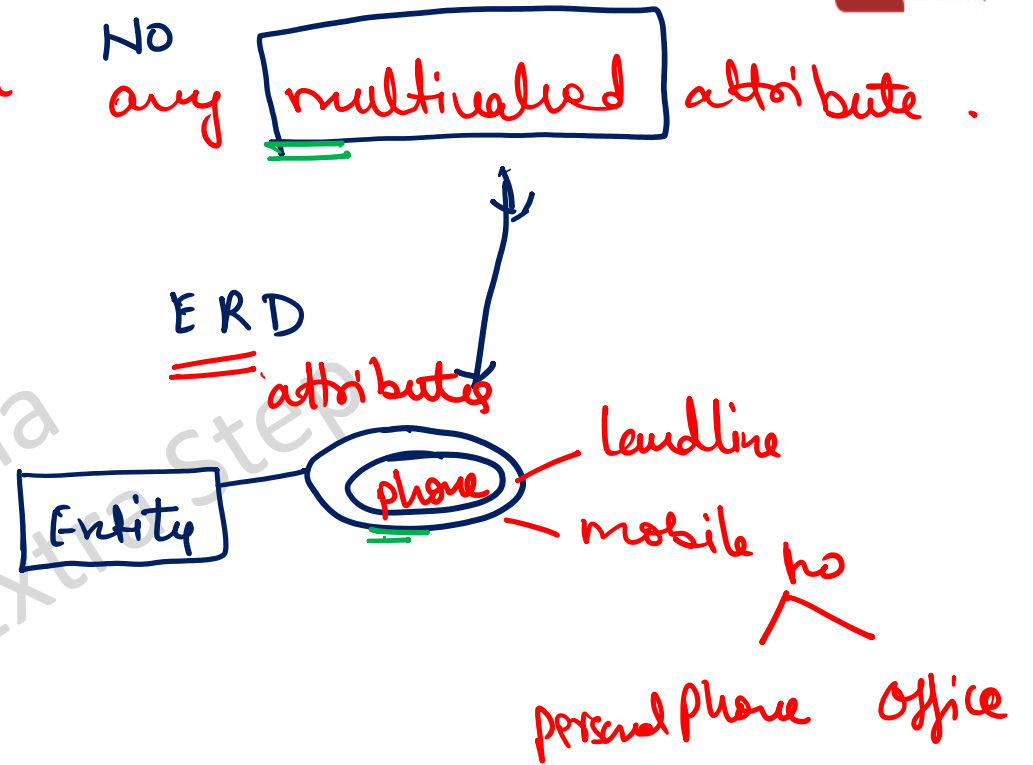 NO
any multivalued attribute .
ERD
attributes
landline
phone
Entity
mobile no
personal phone office
Extra Step